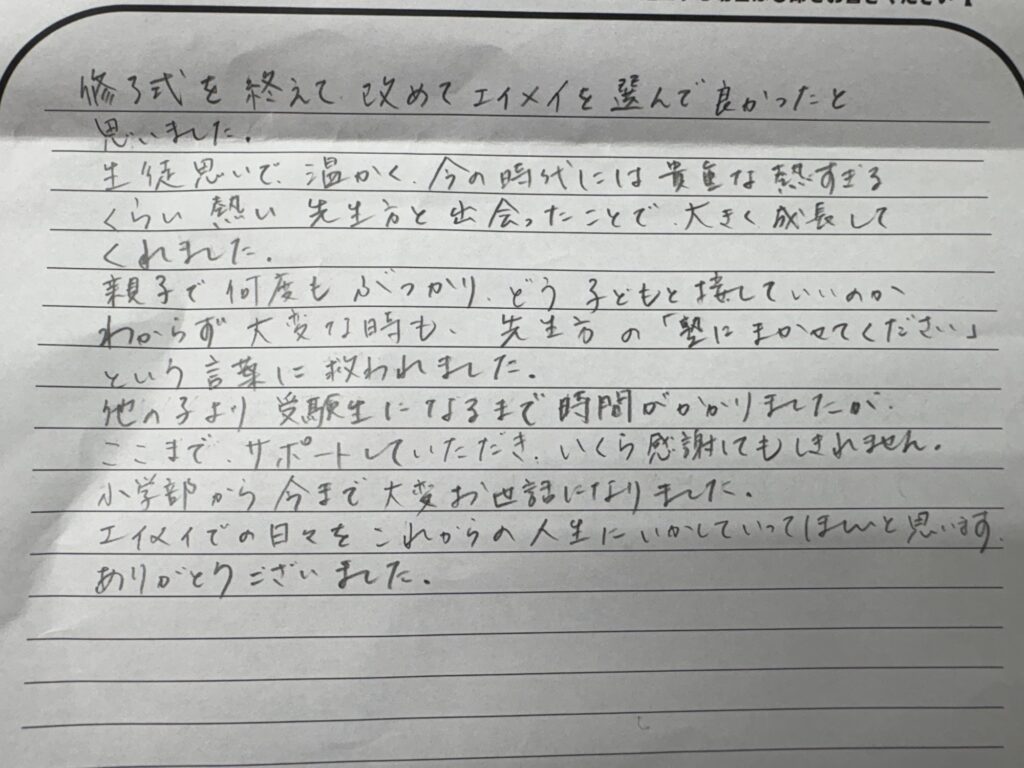 修了式を終えて、改めてエイメイを選んで良かったと
思いました。
生徒思いで、温かく、今の時代には貴重な熱すぎる
くらい熱い先生方と出会ったことで、大きく成長して
くれました。
親子で何度もぶつかり、どう子どもと接していいのか
わからず大変な時も、先生方の「塾にまかせてください」
という言葉に救われました。
他の子より受験生になるまで時間がかかりましたが、
ここまで、サポートしていただき、いくら感謝してもしきれません。
小学部から今まで大変お世話になりました。
エイメイでの日々をこれからの人生にいかしていってほしいと思います。
ありがとうございました。